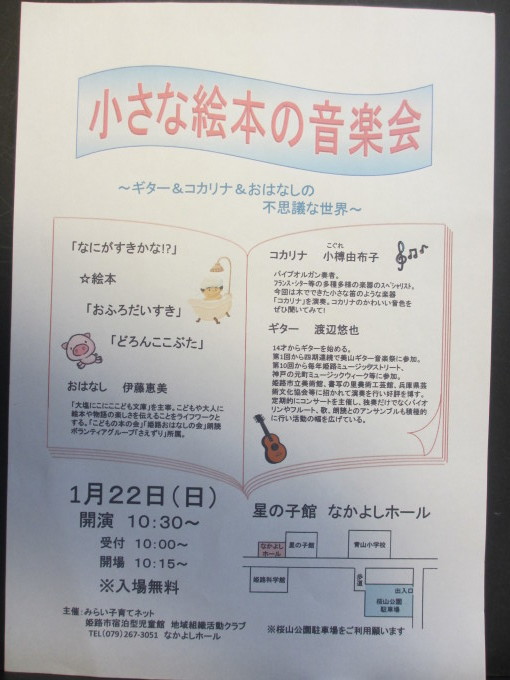 小さな絵本の音楽会
～ギター＆コカリナ＆おはなしの
不思議な世界～
「なにがすきかな!?」
☆絵本
「おふろだいすき」
「どろんここぶた」
おはなし　伊藤恵美
「大塩にこにここども文庫」を主宰。こどもや大人に
絵本や物語の楽しさを伝えることをライフワークと
する。「こどもの本の会」「姫路おはなしの会」朗読
ボランティアグループ「さえずり」所属。
こぐれ
コカリナ　小榑由布子
パイプオルガン奏者。
フランス・シター等の多種多様の楽器のスペシャリスト。
今回は木でできた小さな笛のような楽器
「コカリナ」を演奏。コカリナのかわいい音色を
ぜひ聞いてみて!
ギター　渡辺悠也
14才からギターを始める。
第1回から四期連続で美山ギター音楽祭に参加。
第10回から毎年姫路ミュージックストリート、
神戸の元町ミュージックウィーク等に参加。
姫路市立美術館、書写の里美術工芸館、兵庫県芸
術文化協会等に招かれて演奏を行い好評を博す。
定期的にコンサートを主催し、独奏だけでなくバイオ
リンやフルート、歌、朗読とのアンサンブルも積極的
に行い活動の幅を広げている。
1月22日（日）
開演　10:30～
受付　10:00～
開場　10:15～
※入場無料
主催：みらい子育てネット
姫路市宿泊型児童館　地域組織活動クラブ
TEL(079)267-3051　なかよしホール
星の子館　なかよしホール
なかよし
ホール
星の子館
青山小学校
姫路科学館
歩道
出入口
桜山公園
駐車場
※桜山公園駐車場をご利用願います